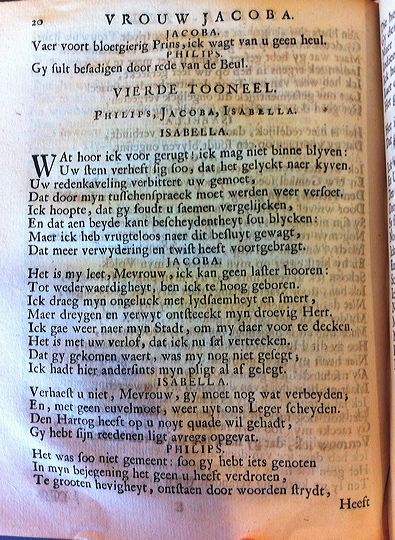 20 VROUW JACOBA.
JACOBA.
Vaer voort bloetgierig Prins, ick wagt van u geen heul.
PHILIPS.
Gy sult besadigen door rede van de Beul.
VIERDE TOONEEL.
PHILIPS, JACOBA, ISABELLA.
ISABELLA.
WAt hoor ick voor gerugt! ick mag niet binne blyven:
Uw stem verheft sig soo, dat het gelyckt naer kyven,
Uw redenkaveling verbittert uw gemoet,
Dat door myn tusschenspraeck moet werden weer versoet.
Ick hoopte, dat gy soudt u saemen vergelijcken,
En dat aen beyde kant bescheydentheyt sou blycken:
Maer ick heb vrugteloos naer dit besluyt gewagt,
Dat meer verwydering en twist heeft voortgebragt.
JACOBA.
Het is my leet, Mevrouw, ick kan geen laster hooren:
Tot wederwaerdigheyt, ben ick te hoog geboren.
Ick draeg myn ongeluck met lydsaemheyt en smert,
Maer dreygen en verwyt ontsteeckt myn droevig Hert.
Ick gae weer naer myn Stadt, om my daer voor te decken.
Het is met uw verlof, dat ick nu sal vertrecken.
Dat gy gekomen waert, was my nog niet gesegt;
Ick hadt hier andersints myn pligt al af gelegt.
ISABELLA.
Verhaest u niet, Mevrouw, gy moet nog wat verbeyden;
En, met geen euvelmoet, weer uyt ons Leger scheyden.
Den Hartog heeft op u noyt quade wil gehadt,
Gy hebt sijn reedenen ligt avregs opgevat.
PHILIPS.
Het was soo niet gemeent: soo gy hebt iets genoten
In myn bejegening het geen u heeft verdroten,
Te grooten hevigheyt, ontstaen door woorden strydt,
Heeft